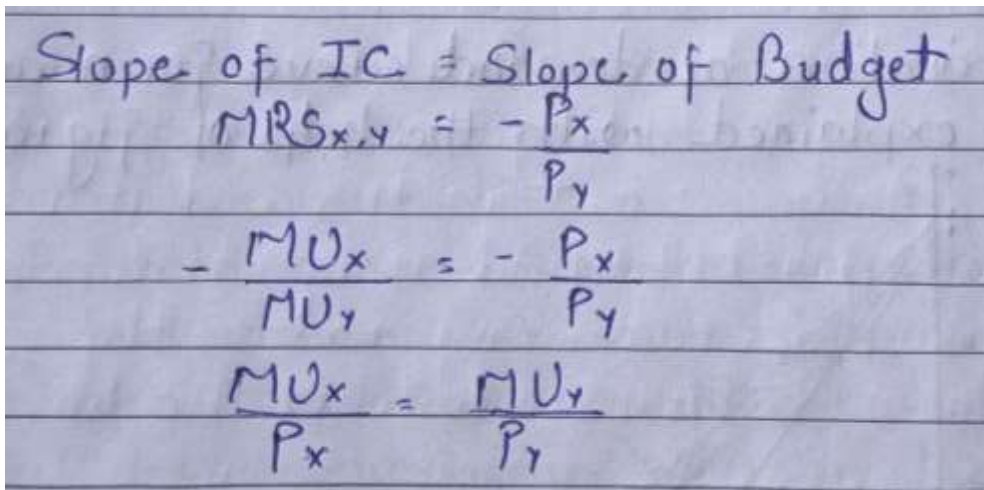 Slope of IC = Slope of Budget
MRSx,y = - Px/Py
- MUx/MUy = - Px/Py
MUx/Px = MUy/Py